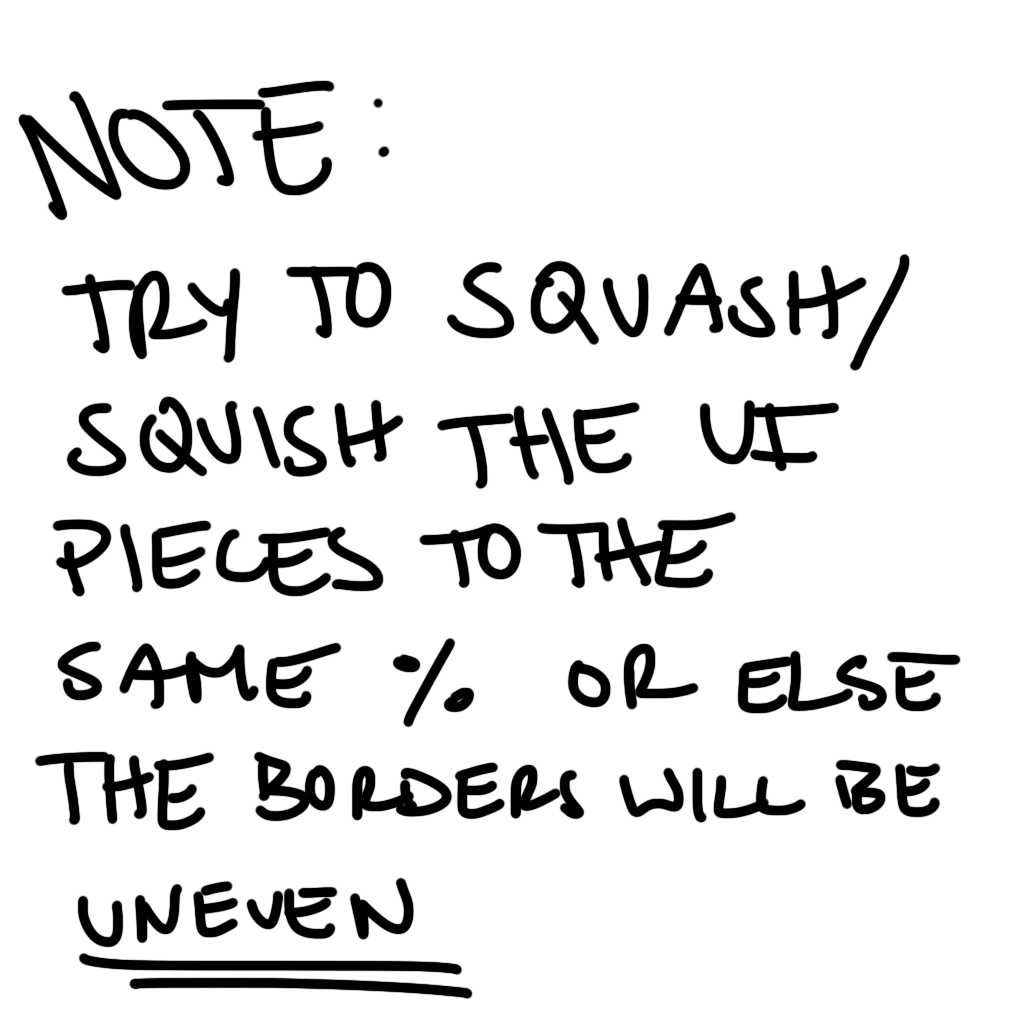 NOTE:
TRY TO SQUASH/
SQUISH THE UI
PIECES TO THE
SAME % OR ELSE
THE BORDERS WILL BE
UNEVEN